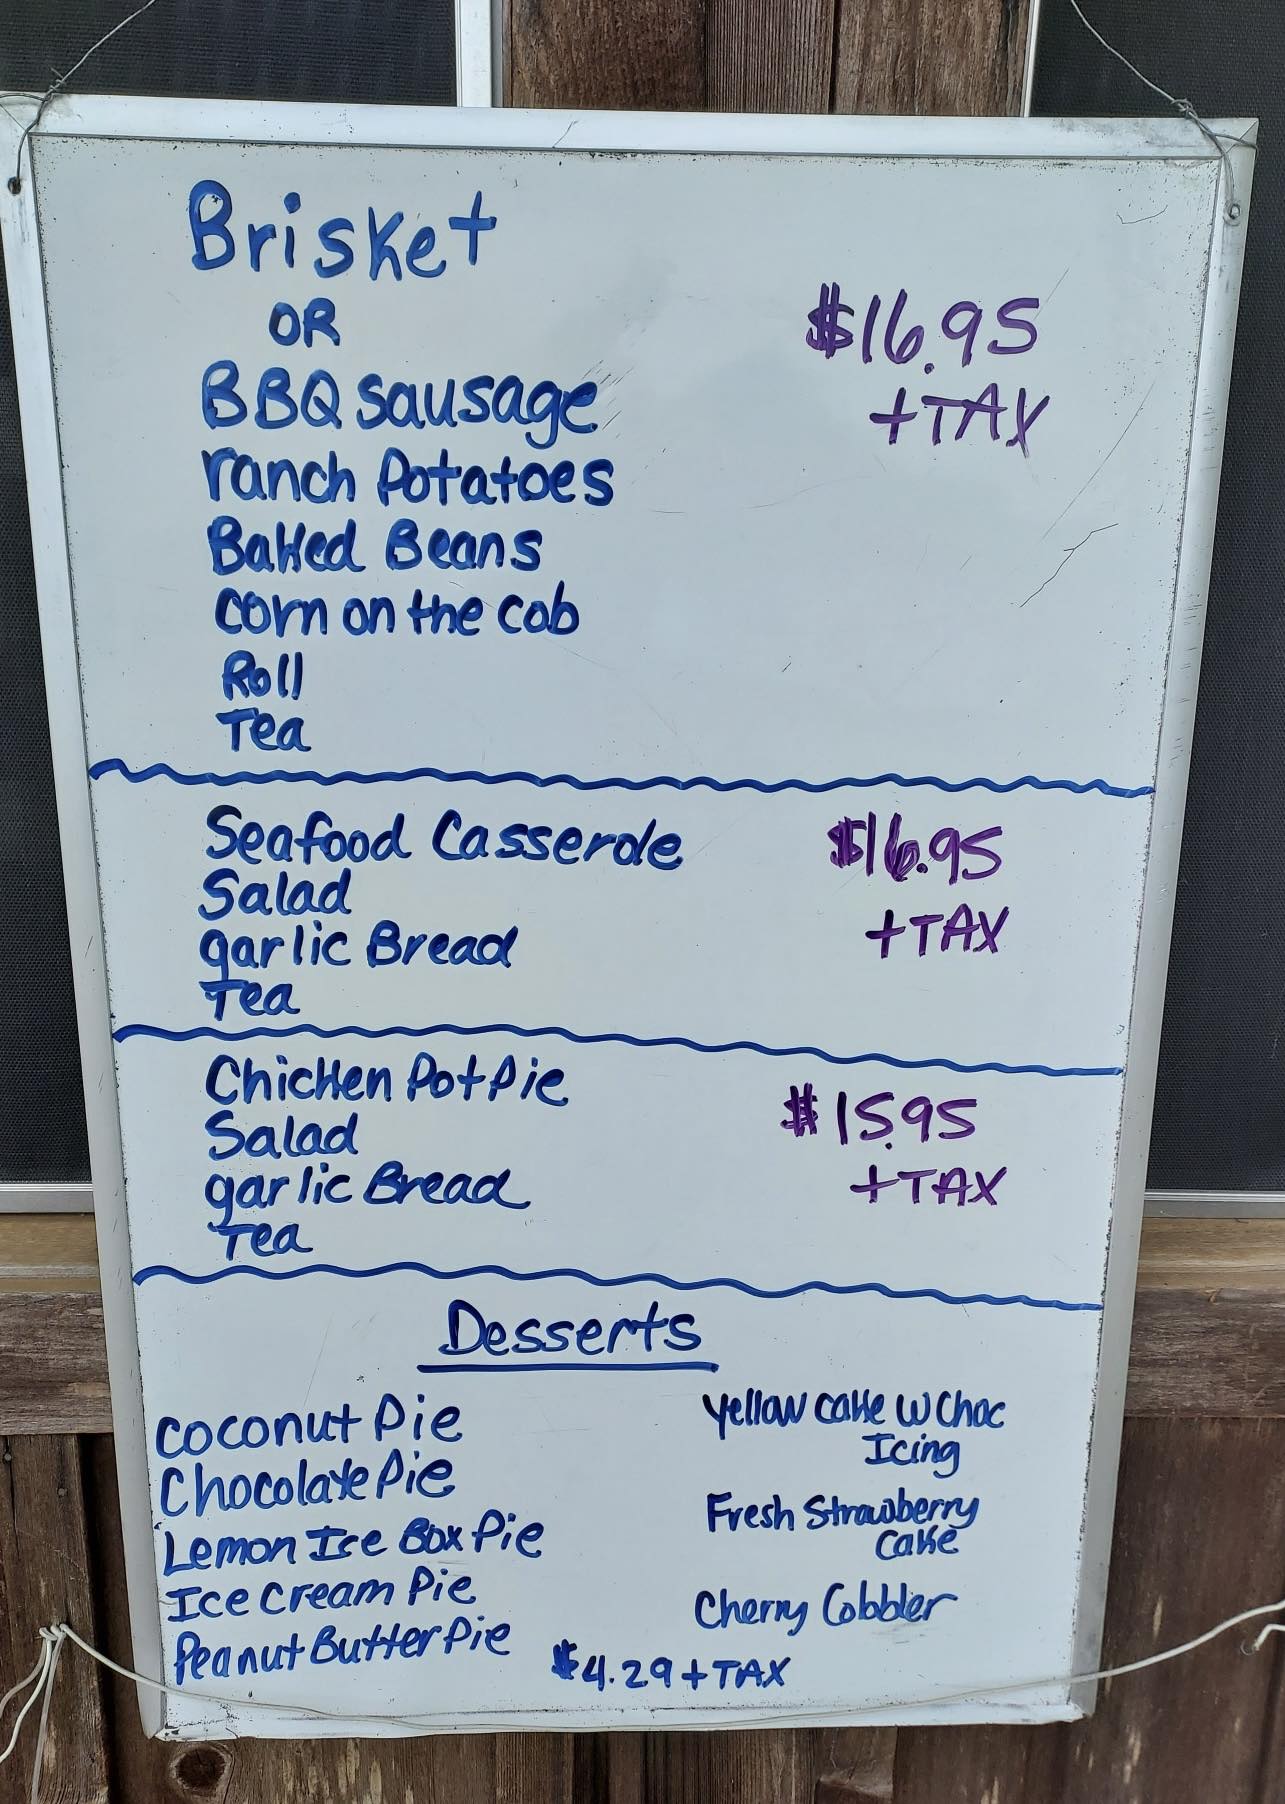 Brisket
OR
BBQ sausage
$16.95
+TAX
ranch Potatoes
Baked Beans
corn on the cob
Roll
Tea
Seafood Casserole
$16.95
Salad
+TAX
garlic Bread
Tea
Chicken Pot Pie
$15.95
Salad
+TAX
garlic Bread
Tea
Desserts
coconut Pie
Chocolate Pie
Lemon Ice Box Pie
Ice Cream Pie
Peanut Butter Pie
Yellow cake w Choc
Icing
Fresh Strawberry
Cake
Cherry Cobbler
$4.29 + TAX